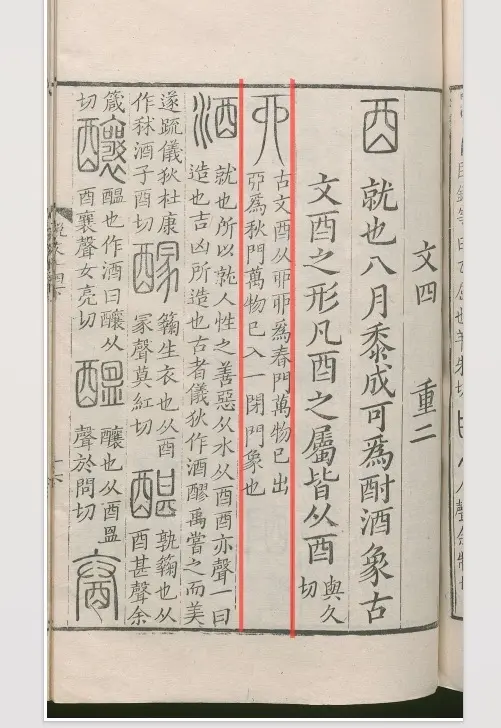 文四 重二
酉 就也八月黍成可爲酎酒象古
文酉之形凡酉之屬皆从酉 與久切
丣 古文酉从戼戼爲春門萬物已出
丣爲秋門萬物已入一閉門象也
酒 就也所以就人性之善惡从水从酉酉亦聲一曰
造也吉凶所造也古者儀狄作酒醪禹嘗之而美
遂疏儀狄杜康
作秫酒子酉切
䤓 𥶶生衣也从酉
冡聲莫紅切
孰𥶶也从
酉甚聲余
箴
切
釀 醞也作酒曰釀从
酉襄聲女亮切
醞 釀也从酉𥁕
聲於問切